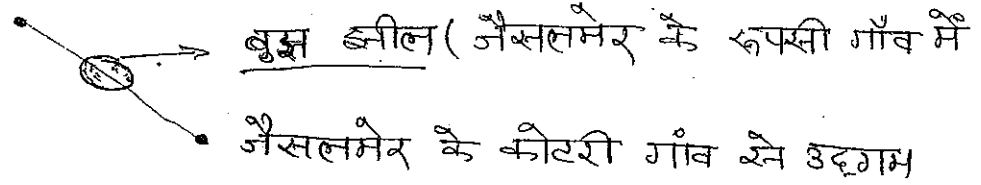 बुझ झील (जैसलमेर के रूपसी गाँव में
जैसलमेर के कोटरी गांव से उद्‌गम